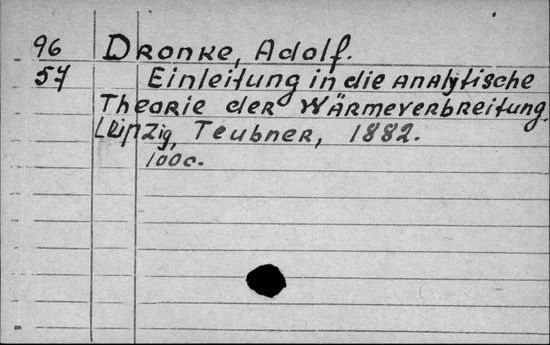 96 Dronke, Adolf.
57 Einleitung in die analytische
Theorie der Wärmeverbreitung.
Leipzig, Teubner, 1882.
100c.